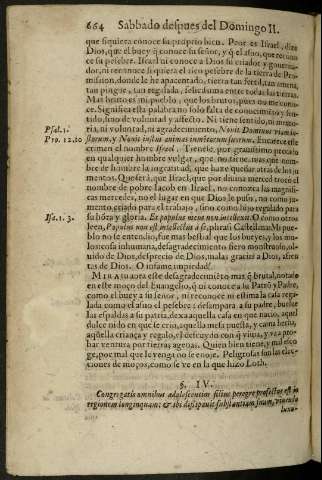 664 Sabbado despues del Domingo II.
que siquiera conoce su proprio bien. Peor es Israel, dize
Dios, que el buey q̃ conoce su señor, y q̃ el asno, que recono
ce su pesebre. Israel ni conoce a Dios su criador y governa-
dor, ni reconoce siquiera el rico pesebre de la tierra de Pro-
mission, donde le he apacentado, tierra tan fertil, tan amena,
tan pingue, tan regalada, señalada entre todas las tierras.
Mas bruto es mi pueblo, que los brutos, pues no me cono-
ce. Significa esta palabra no solo falta de conocimiẽto y sen-
tido, sino de voluntad y affecto. Ni tiene sentido, ni memo-
ria, ni voluntad, ni agradecimiento, Novit Dominus viam iu-
storum, y Novit iustus animas iumentorum suorum.
Psal. 1.
Pro. 12.10
crimen el nombre Israel
qualquier hombre vulgar, que no tiene mas que nom-
bre de hombre la ingratitud, que hare de
mentos. Que sera, que Israel, que por divina merced trocò el
nombre de pobre Iacob en Israel, no conozca las magnifi-
cas mercedes, no el lugar en que Dios le puso, no como ju-
mento, criado para el trabajo, sino como hijo regalado para
su hõra y gloria. Et populus meus non intellexit. O como otros
Isa. 1. 3.
leen, Populus non est intellectus à se, plural: Castellana: Mi pue-
blo no se entiende, fue mas bestial que los bueyes, y los mo-
lonso in humana, desagradecimiento fiero monstruoso, ol-
vido de Dios, desprecio de Dios, malas gracias a Dios, afren
tas de Dios. O infame impiedad!
MIRAD aora este desagradecimiẽto mas q̃ brutal, notado
en este moço del Evangelio, q̃ ni conoce a su Patrõ y Padre,
como el buey a su señor, ni reconoce ni estima la casa rega-
lada como el asno el pesebre: desampara a su padre, buelve
las espaldas a su patria, dexa aquella casa en que nacio, aquel
dulce nido en que se crio, aquella mesa puesta, y cama hecha,
aq̃lla criança y regalo, el descuydo con q̃ vivia, y va a pro-
bar ventura por tierras agenas. Quien bien tiene, y mal esco
ge, por mal que le venga no se enoje. Peligrosas son las elec-
ciones de moços, como se ve en la que hizo Loth.
§. IV.
Congregatis omnibus adolescentior filius peregre profectus est in
regionem longinquam: & ibi dissipavit substantiam suam, vivendo
luxu-